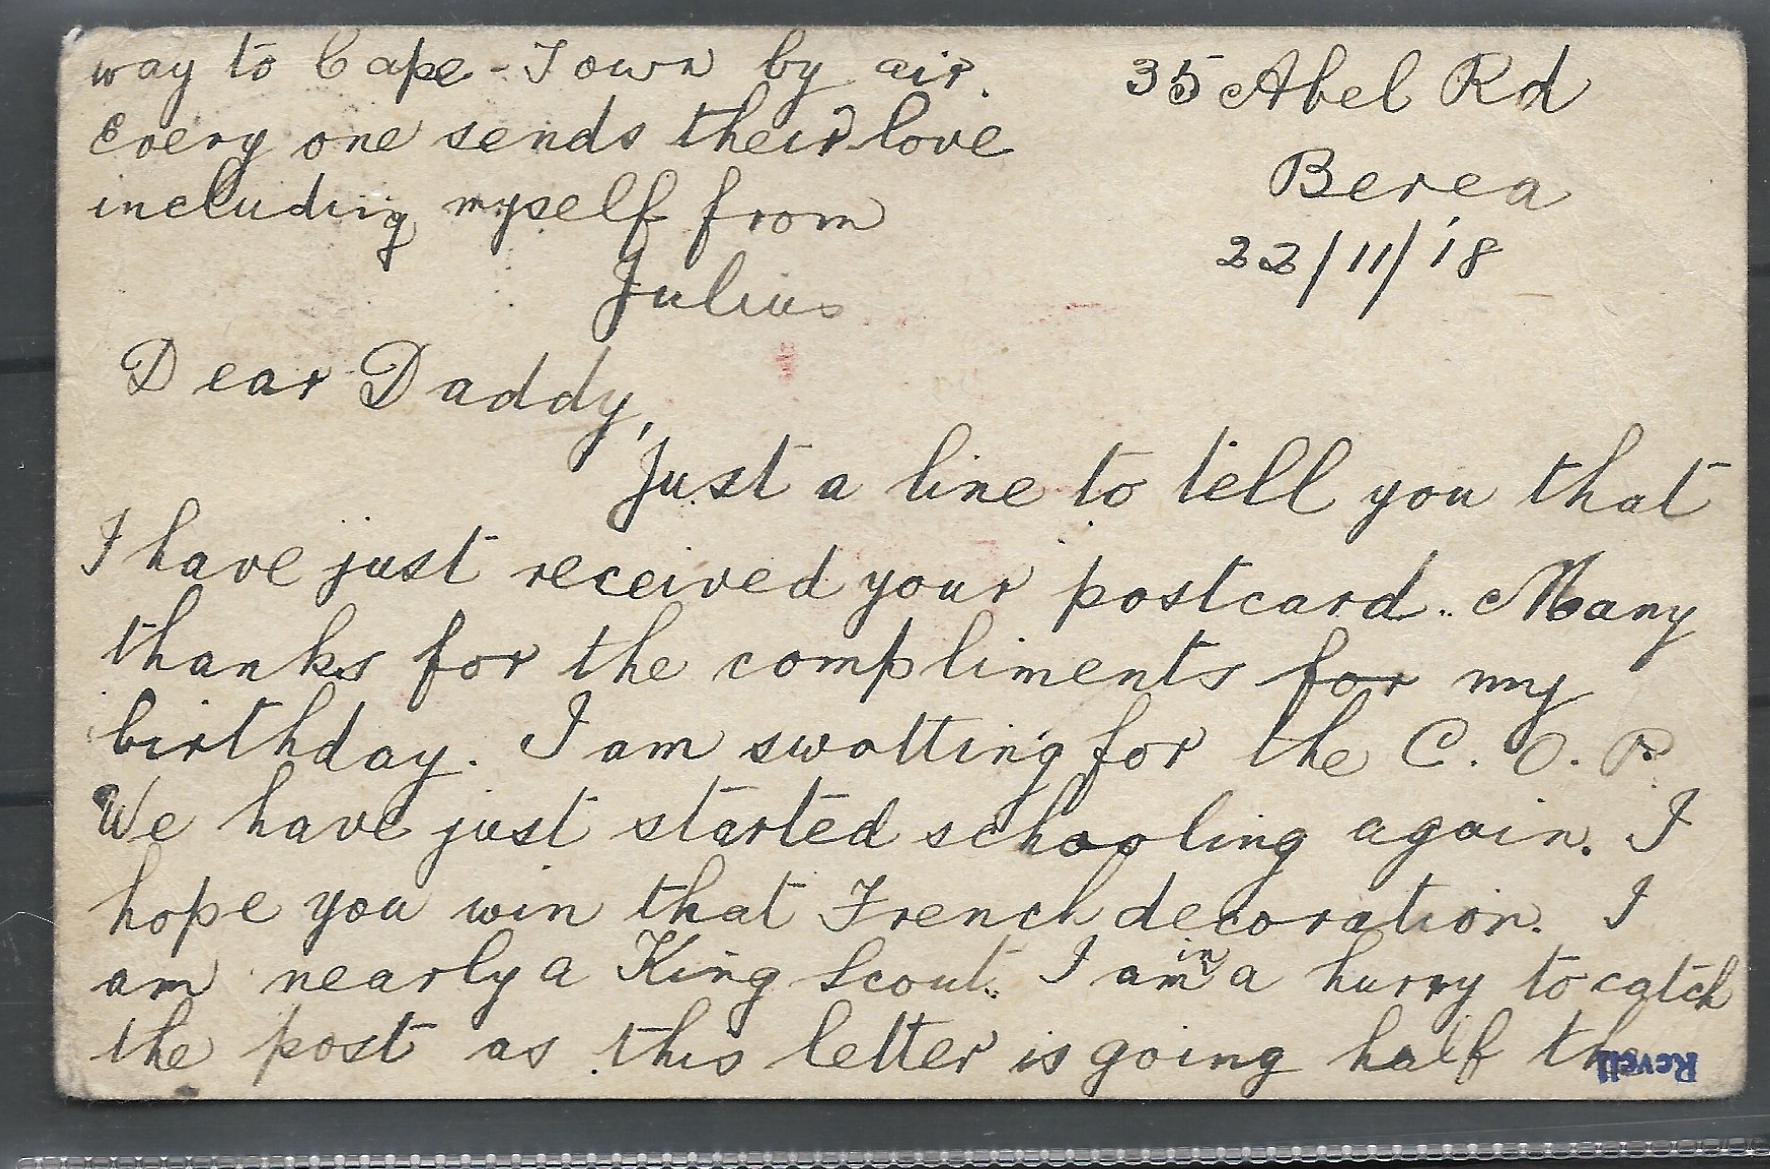 35 Abel Rd
Berea
22/11/'18
Dear Daddy,
Just a line to tell you that
I have just received your postcard. Many
thanks for the compliments for my
birthday. I am swotting for the C. O. P.
We have just started schooling again. I
hope you win that French decoration. I
am nearly a King Scout. I am in a hurry to catch
the post as this letter is going half the
way to Cape-Town by air.
Every one sends their love
including myself from
Julius
Revell